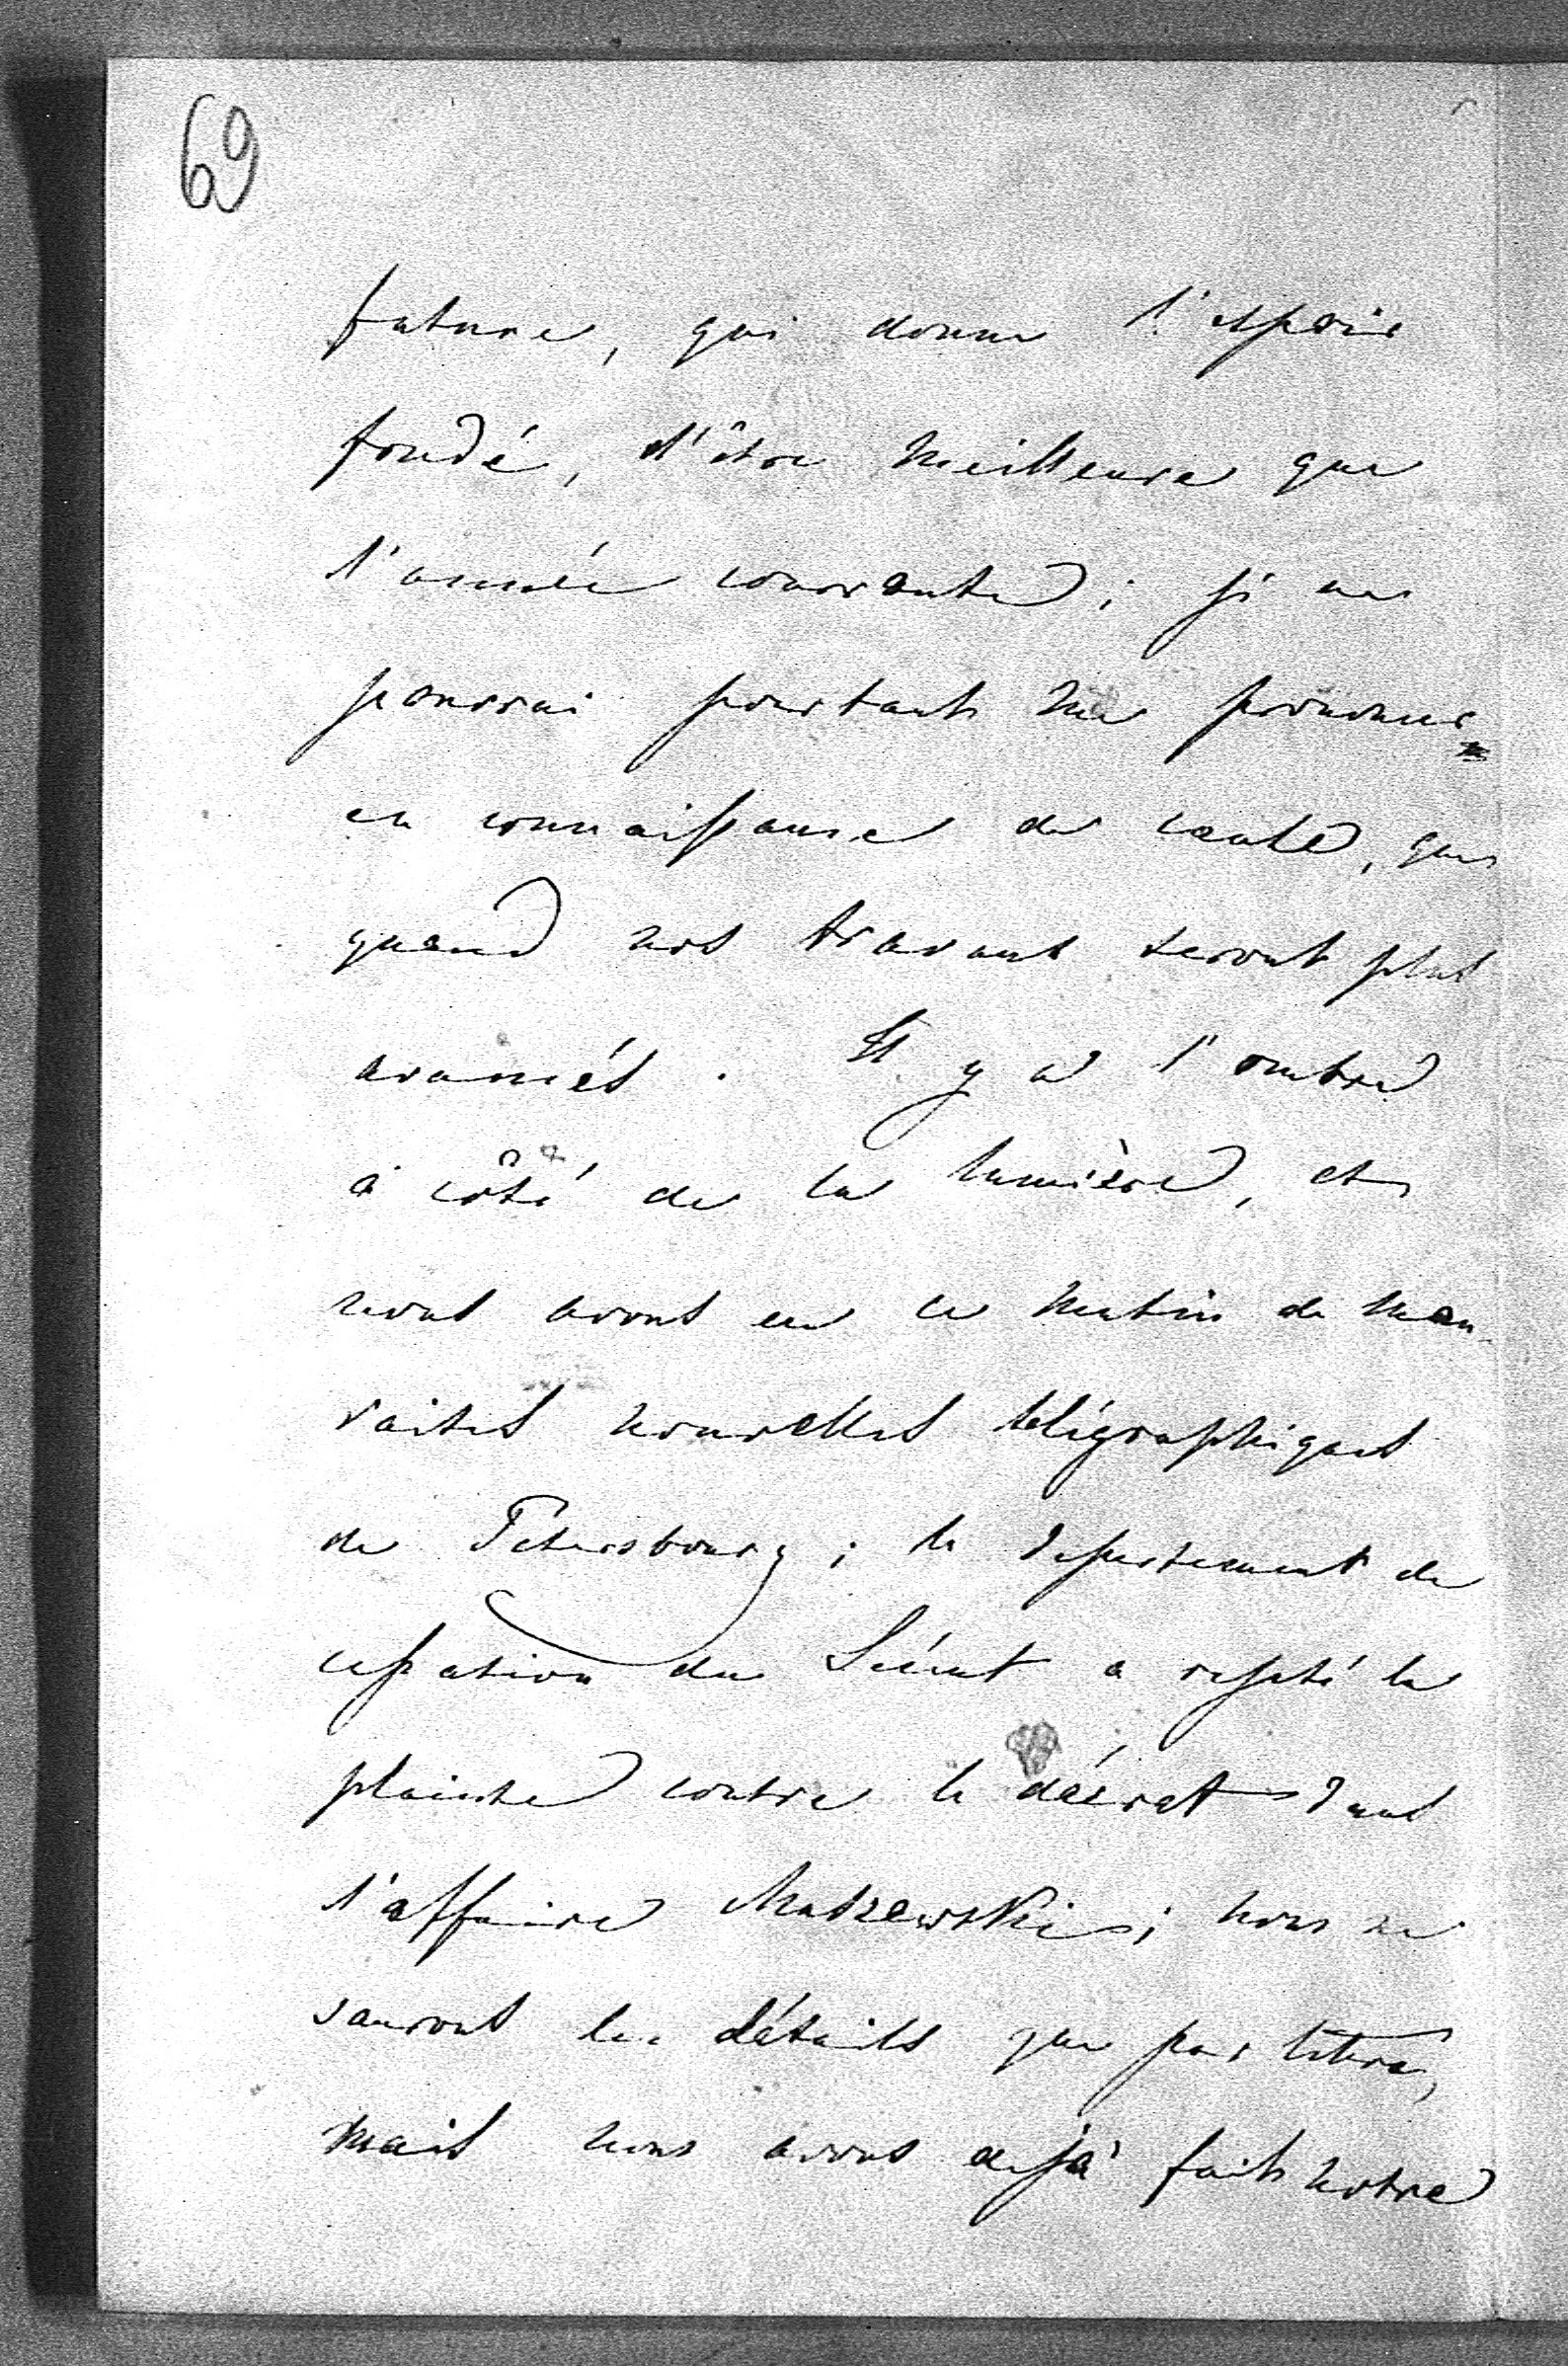 69
future, qui donne l'espoir
fondé, d'être meilleure que
l'année courrante; je ne
pourrai pourtant me prononcer
en connaissance de cause, que
quand nos travaux seront plus
avancés. Il y a l'ombre
à côté de la lumière, et
nous avons eu ce matin de mau-
vaises nouvelles télégraphiques
de Petersbourg; le departement de
cessation du Sénat a rejeté la
plainte contre le décret dans
l'affaire; nous ne
saurons les détails que par lettre,
mais nous avons dejà fait notre